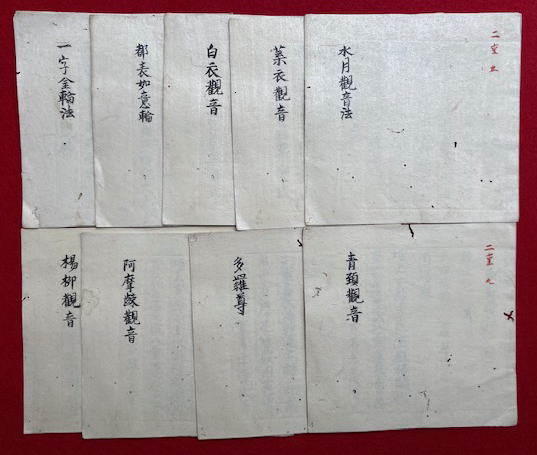 二重 五
水月觀音法
葉衣觀音
白衣觀音
都表如意輪
一字金輪法
二重 九
青頸觀音
多羅尊
阿摩䚟觀音
楊柳觀音